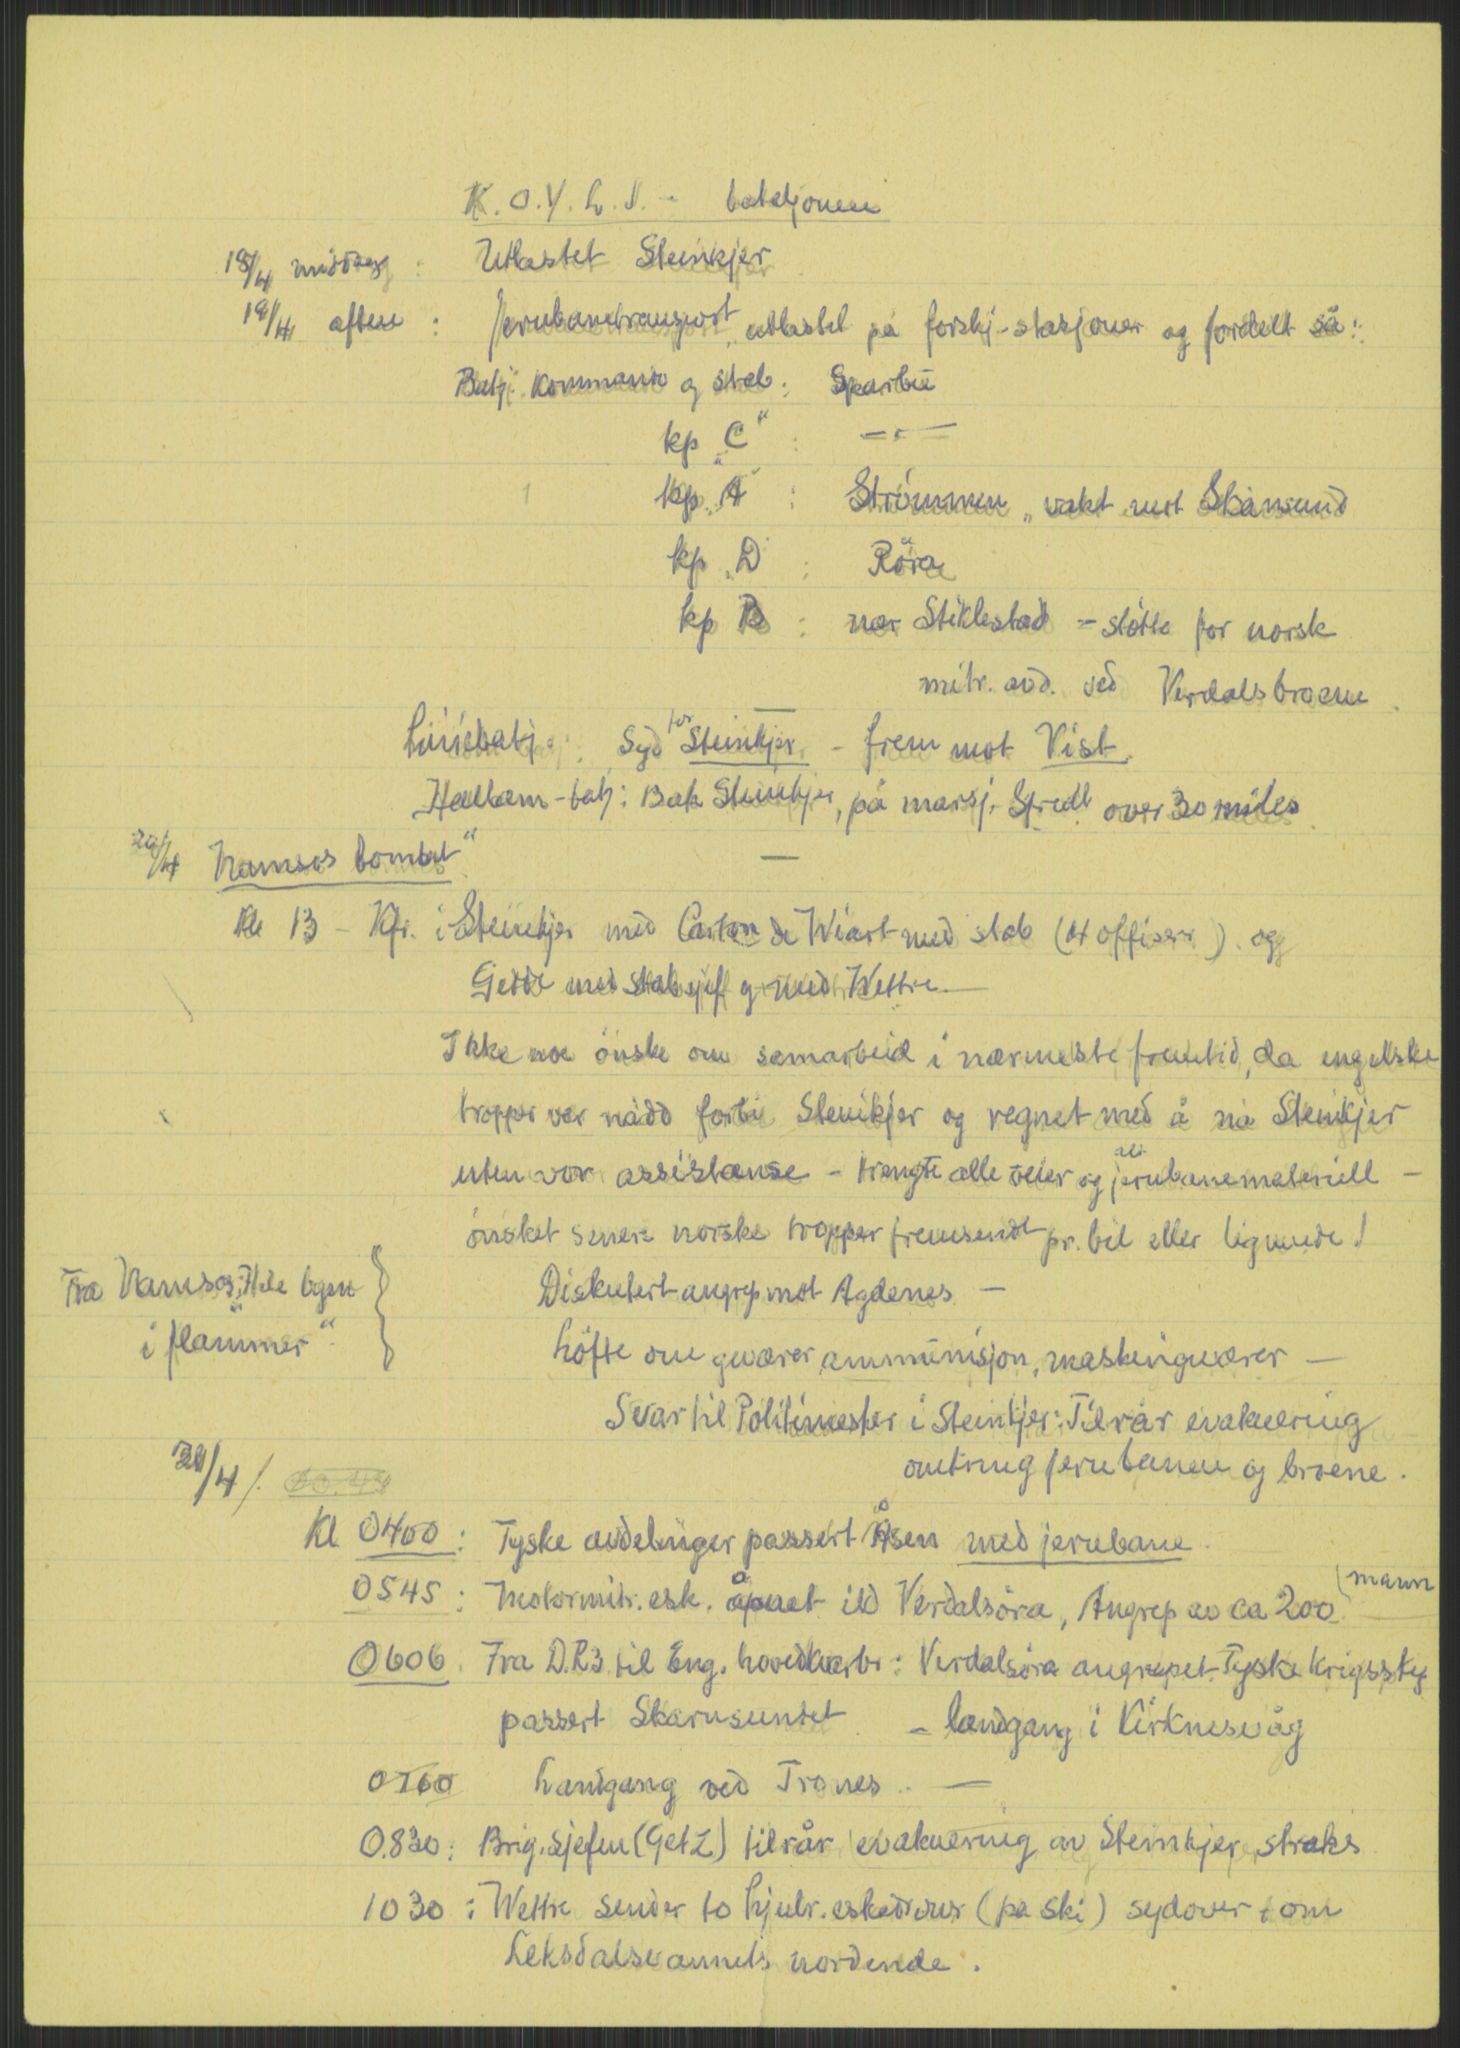 K.O.Y.L.I. - bataljonen
18/4 middag : Utlastet Steinkjer
19/4 aften : Jernbanetransport, utlastet på forskj. stasjoner og fordelt så:
Batj. kommando og stab : Sparbu
kp „C“ : — " —
kp „A“ : Strömmen „ vakt mot Skarnsund
kp „D : Röra
kp B : nær Stiklestad - stötte for norsk
mitr. avd. ved Verdalsbroene
Liniebatj : Syd for Steinkjer - frem mot Vist.
Hallams-batj : Bak Steinkjer, på marsj. Spredt over 30 miles
20/4 Namsos bombet“
Kl 13 - Kfr. i Steinkjer med Carton de Wiart med stab (4 offiserer) og
Getz med stabsjef og med Wettre —
Ikke noe önske om samarbeid i nærmeste fremtid, da engelske
tropper var nådd forbi Steinkjer og regnet med å nå Steinkjer
uten vår assistanse - trengte alle veier og alt jernbanemateriell -
önsket senere norske tropper fremsendt pr. bil eller lignende!
Fra Namsos: „Hele byen
i flammer“
Diskutert angrep mot Agdenes —
Löfte om geværer, ammunisjon, maskingeværer —
Svar til Politimester i Steinkjer: Tilrår evakuering
omkring jernbanen og broene.
21/4
Kl 0400 : Tyske avdelinger passert Åsen med jernbane.
0545 : Motormitr. esk. åpnet ild Verdalsöra, Angrep av ca 200 mann
0606. Fra D.R.3 til Eng. hovedkvarter : Verdalsöra angrepet. Tyske krigsskip
passert Skarnsundet - landgang i Kirknesvåg
0700 Landgang ved Trones. —
0830 : Brig.sjefen (Getz) tilrår evakuering av Steinkjer, straks
1030 : Wettre sender to hjulr. eskadroner (på ski) sydover t om
Leksdalsvannets nordende.